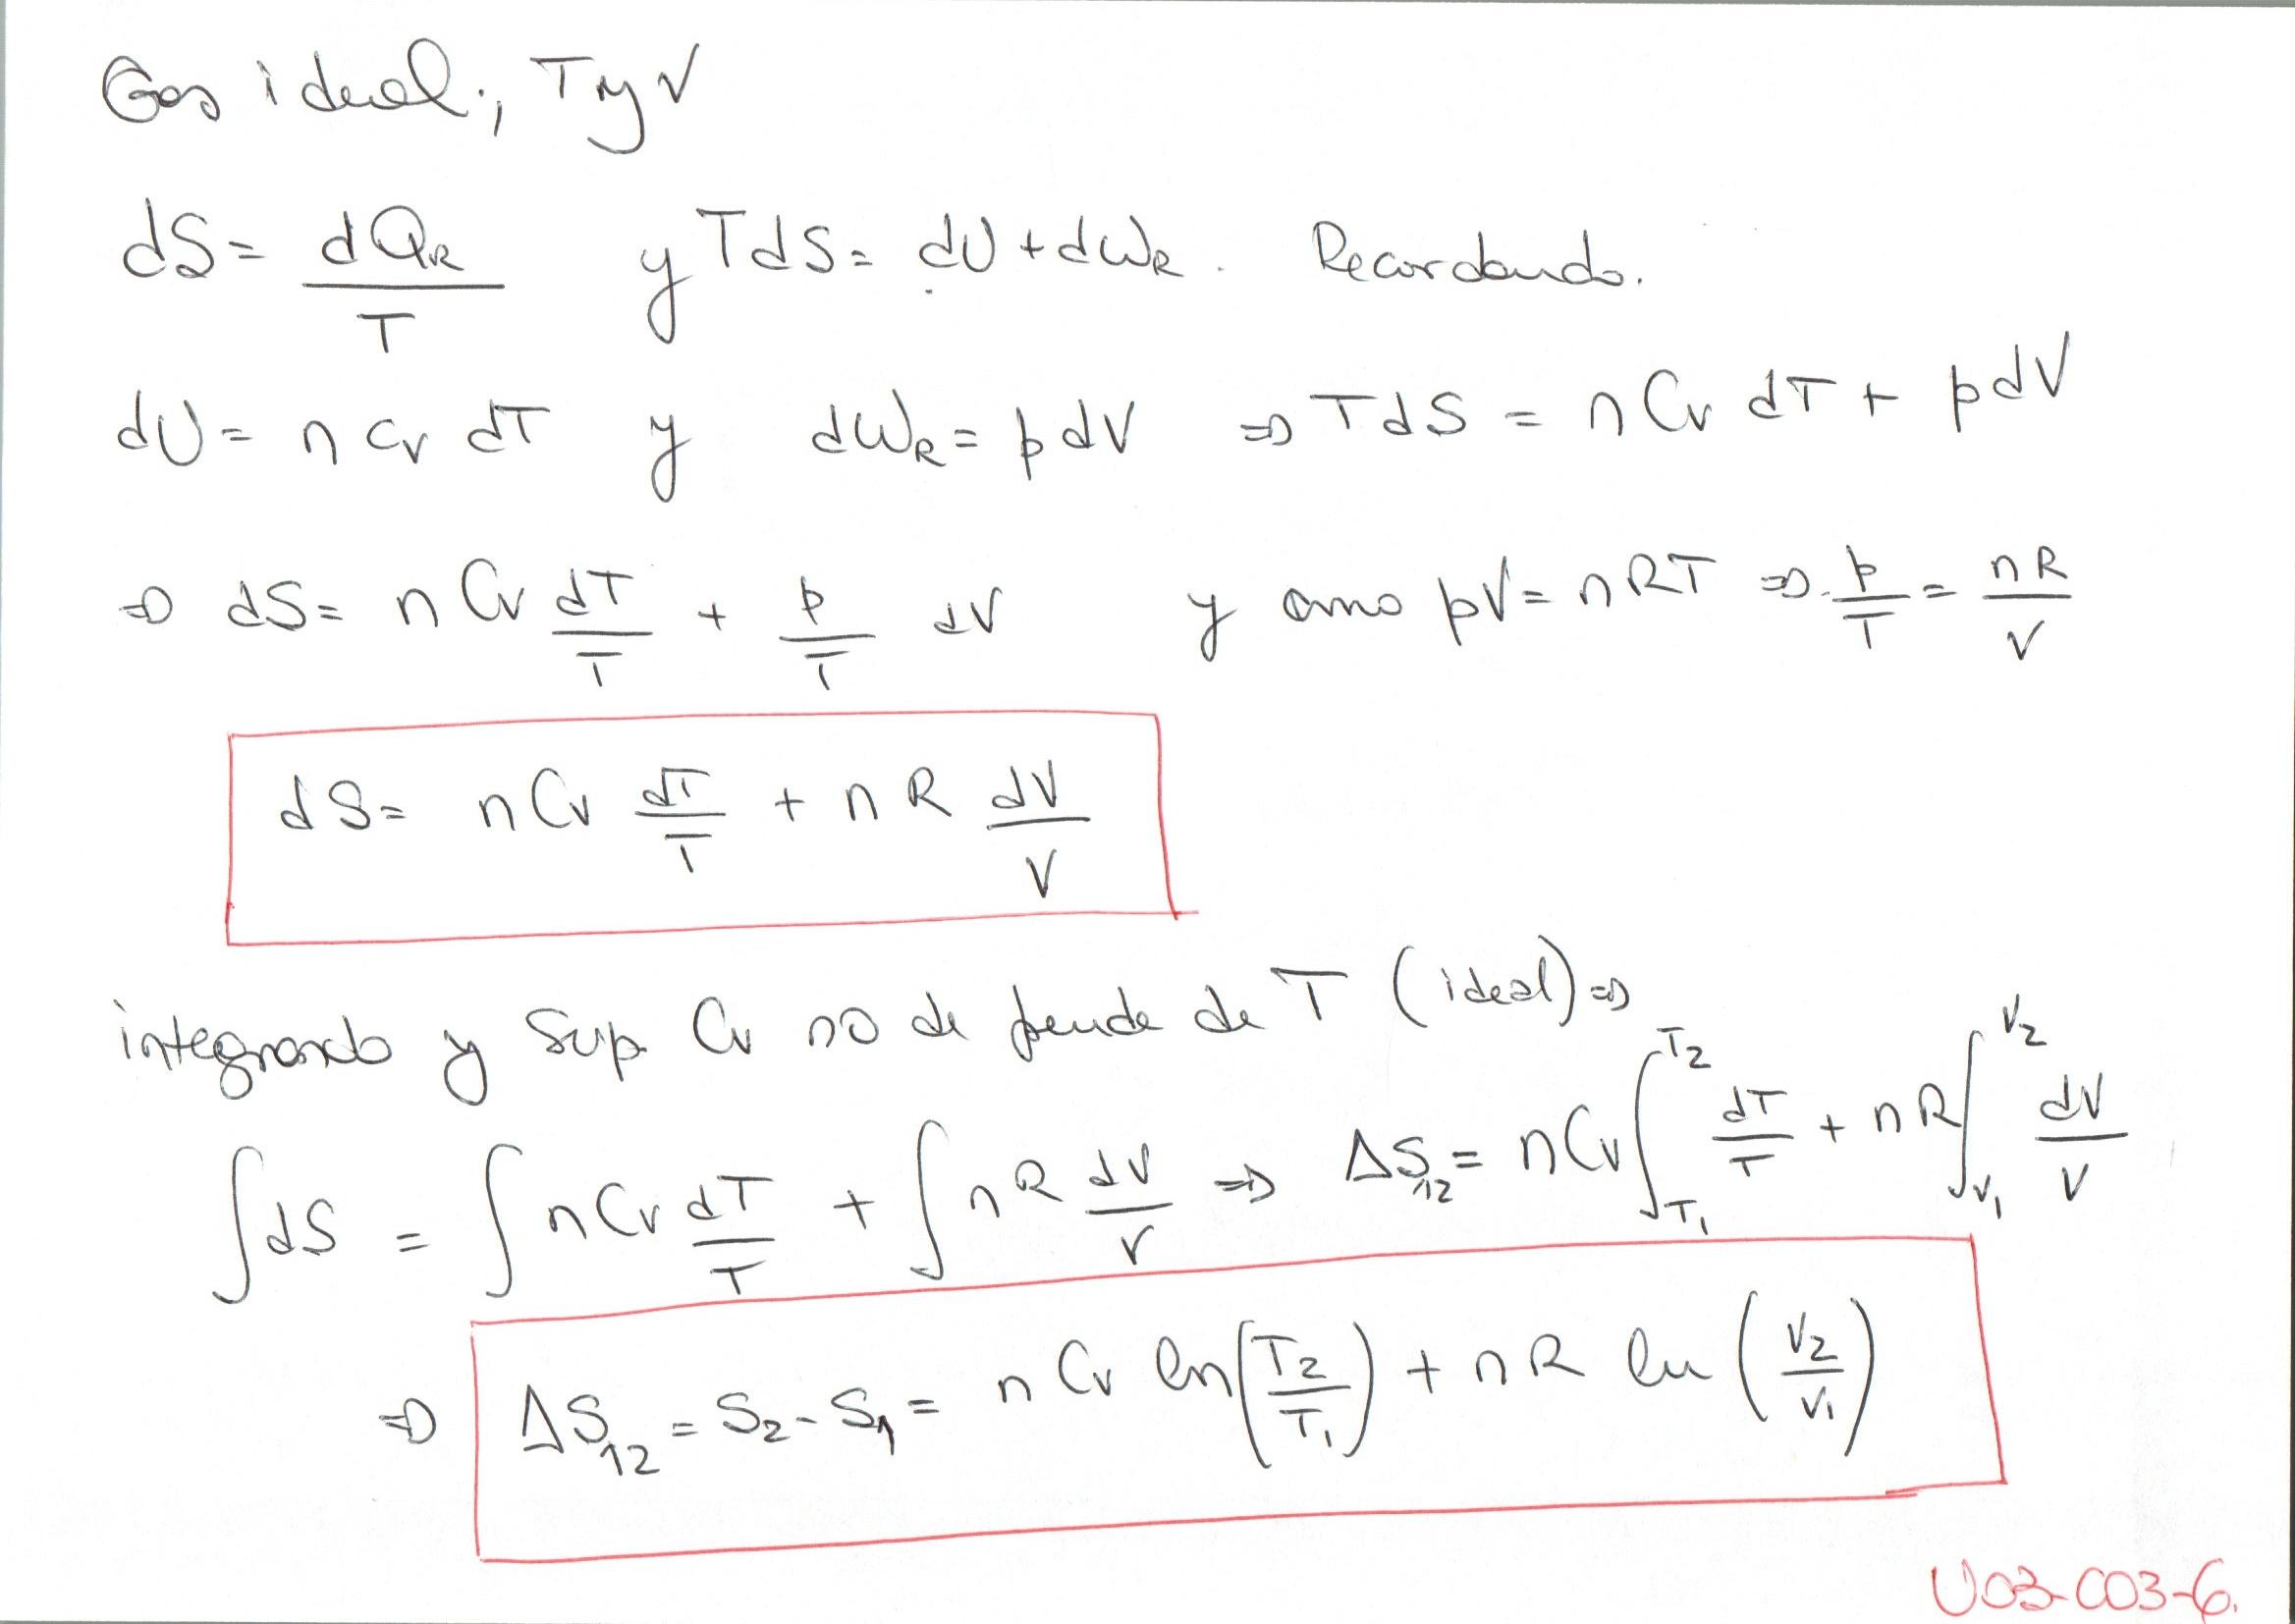 Gas ideal; T y V
dS = dQR/T y TdS = dU + dWR. Recordando.
dU = n cv dT y dWR = p dV ⇒ TdS = n Cv dT + p dV
⇒ dS = n Cv dT/T + p/T dV y como pV = nRT ⇒ p/T = nR/V
dS = n Cv dT/T + n R dV/V
integrando y Sup. Cv no depende de T (ideal) ⇒
∫dS = ∫n Cv dT/T + ∫nR dV/V ⇒ ΔS12 = n Cv ∫T1T2 dT/T + nR ∫V1V2 dV/V
⇒ ΔS12 = S2 - S1 = n Cv ln(T2/T1) + nR ln(V2/V1)
U03-C03-6.